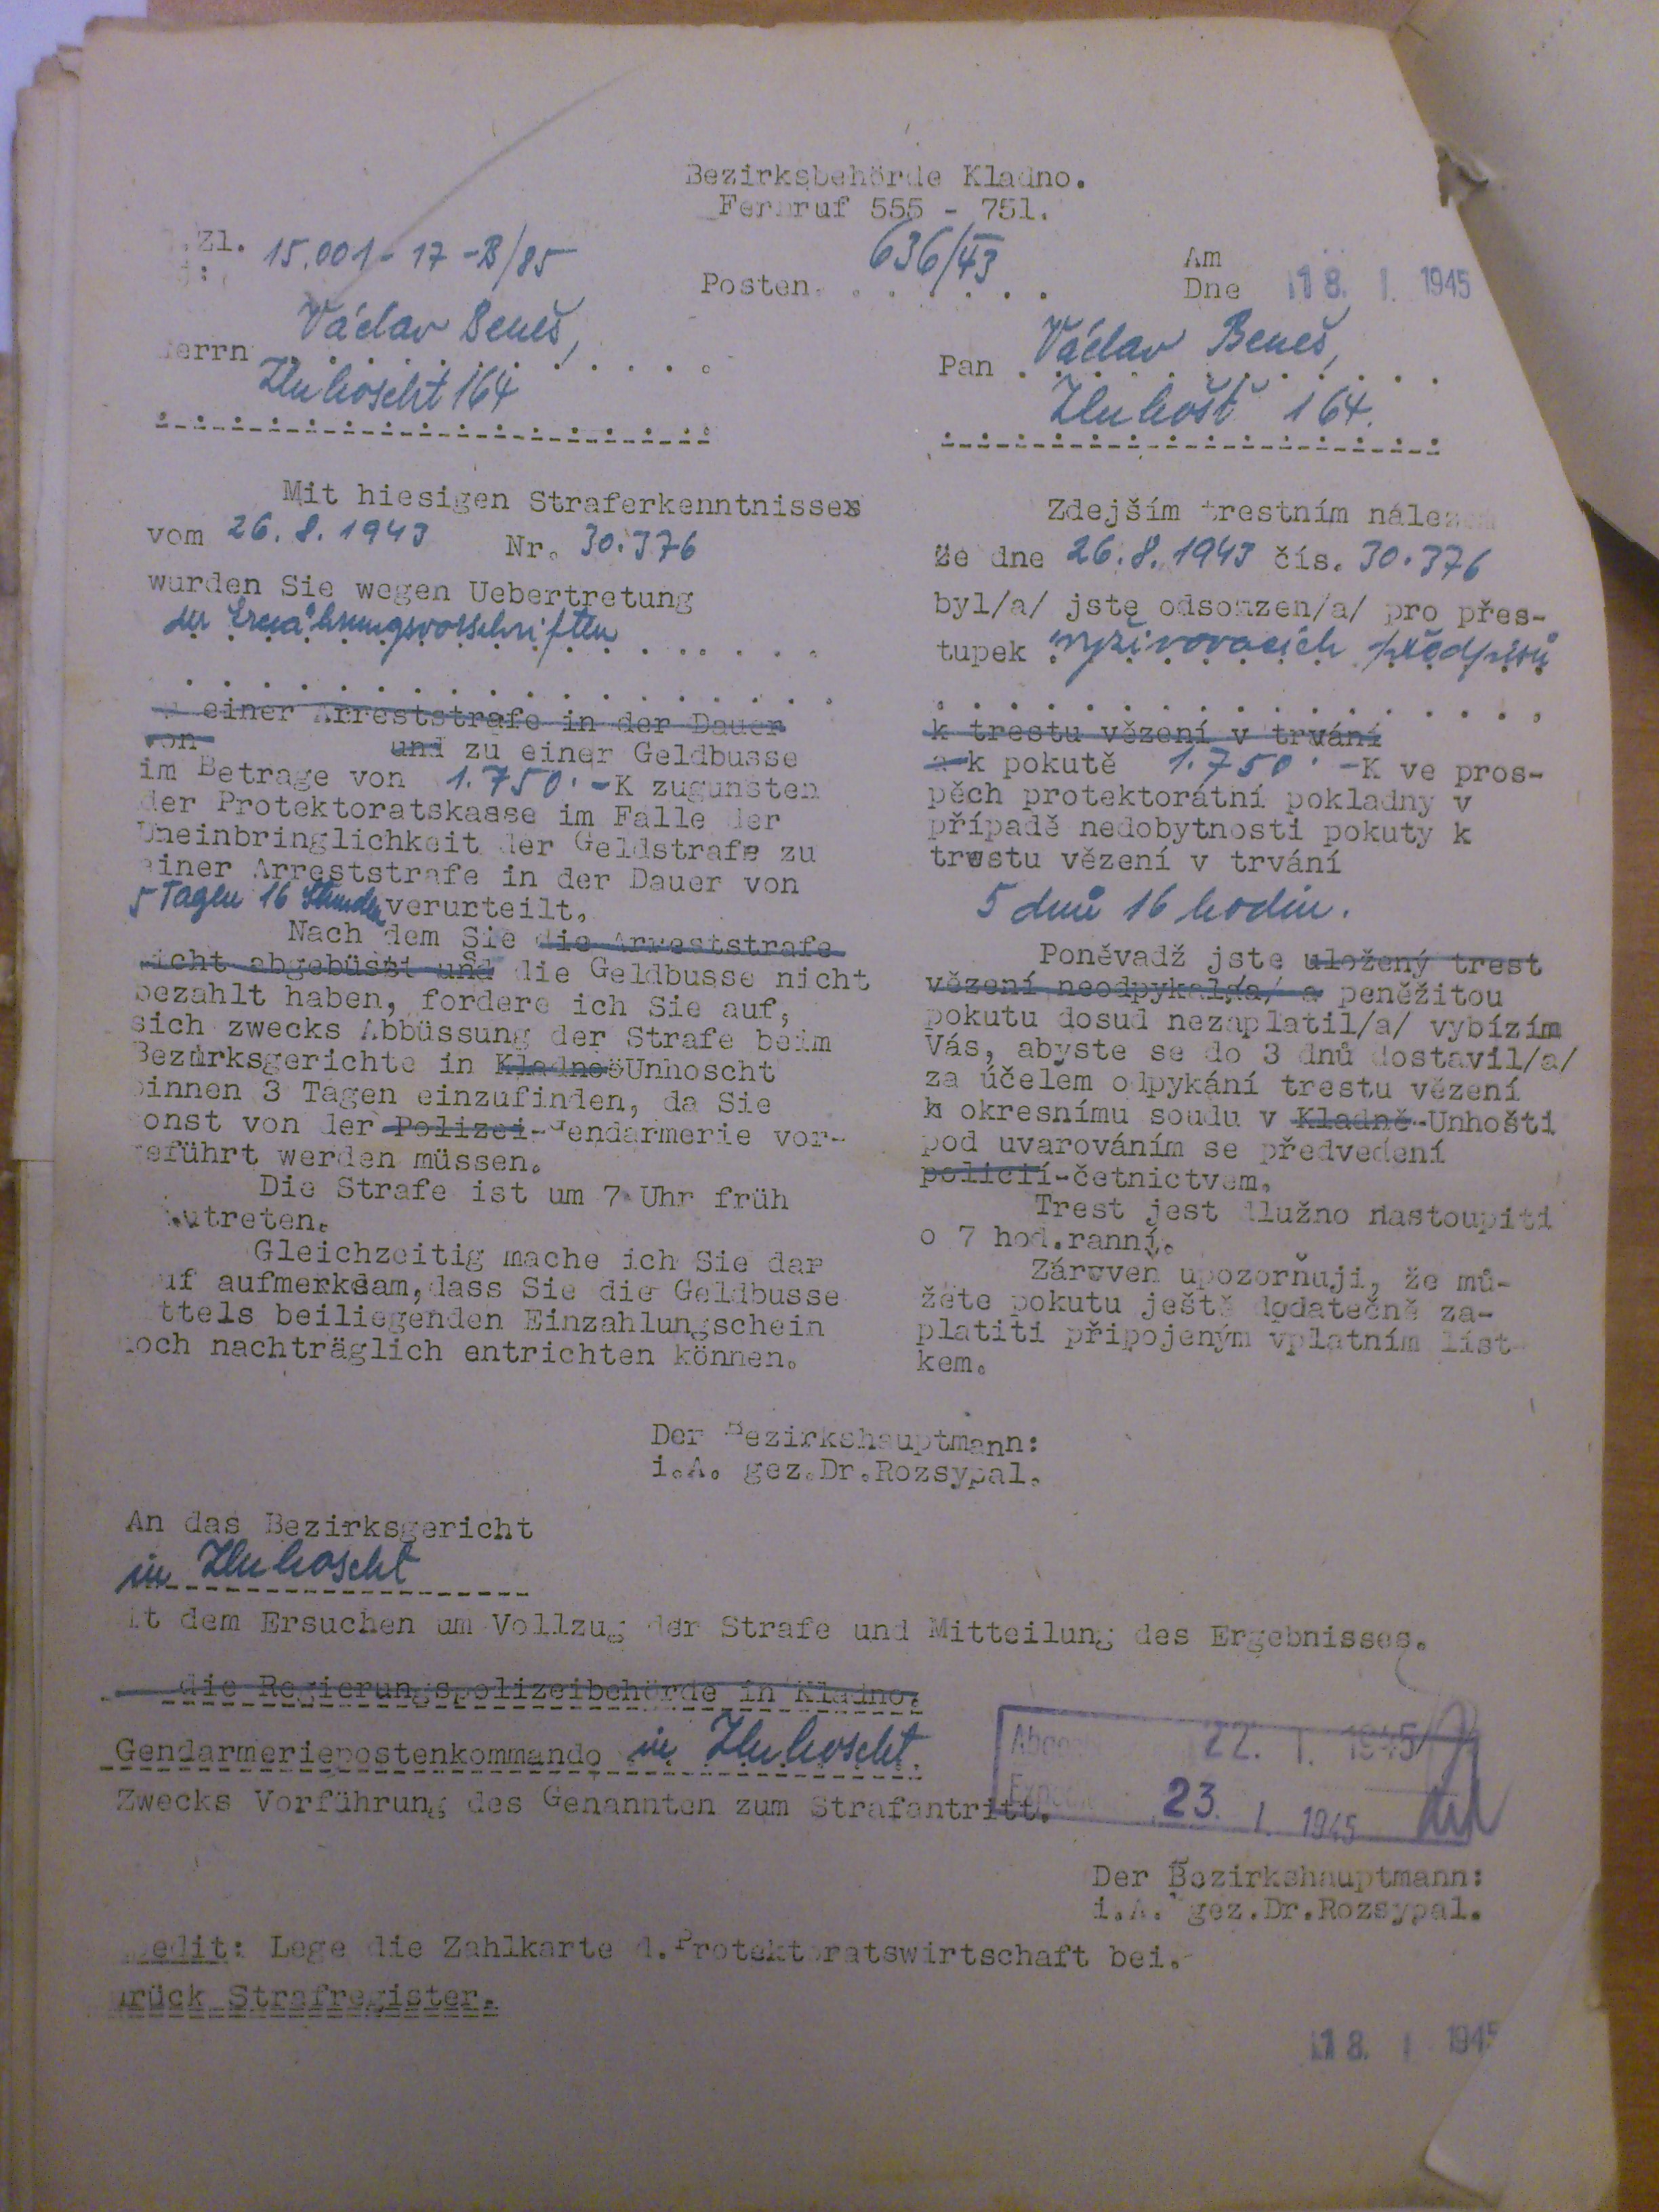 Bezirksbehörde Kladno.
Fernruf 555 - 751.
.Zl. 15.001 - 17 - B/85
Posten. 636/43
Am
Dne 18. I. 1945
Herrn Václav Beneš,
Unhoscht 164
Mit hiesigen Straferkenntnisses
vom 26.8.1943 Nr. 30.376
wurden Sie wegen Uebertretung
der Ernährungsvorschriften
einer Arreststrafe in der Dauer
von und zu einer Geldbusse
im Betrage von 1.750.-K zugunsten
der Protektoratskasse im Falle der
Uneinbringlichkeit der Geldstrafe zu
einer Arreststrafe in der Dauer von
5 Tagen 16 Stunden verurteilt.
Nach dem Sie die Arreststrafe
nicht abgebüsst und die Geldbusse nicht
bezahlt haben, fordere ich Sie auf,
sich zwecks Abbüssung der Strafe beim
Bezirksgerichte in Kladno Unhoscht
binnen 3 Tagen einzufinden, da Sie
sonst von der Polizei-Gendarmerie vor-
geführt werden müssen.
Die Strafe ist um 7 Uhr früh
utreten.
Gleichzeitig mache ich Sie dar
uf aufmerksam, dass Sie die Geldbusse
ttels beiliegenden Einzahlungschein
noch nachträglich entrichten können.
Pan Václav Beneš,
Unhošť 164.
Zdejším trestním nálezem
ze dne 26.8.1943 čís. 30.376
byl/a/ jste odsouzen/a/ pro přes-
tupek vyživovacích předpisů
k trestu vězení v trvání
a k pokutě 1.750.-K ve pros-
pěch protektorátní pokladny v
případě nedobytnosti pokuty k
trestu vězení v trvání
5 dnů 16 hodin.
Poněvadž jste uložený trest
vězení neodpykal/a/ a peněžitou
pokutu dosud nezaplatil/a/ vybízím
Vás, abyste se do 3 dnů dostavil/a/
za účelem odpykání trestu vězení
k okresnímu soudu v Kladně-Unhošti
pod uvarováním se předvedení
policií-četnictvem.
Trest jest dlužno nastoupiti
o 7 hod.ranní.
Zároveň upozorňuji, že mů-
žete pokutu ještě dodatečně za-
platiti připojeným vplatním líst-
kem.
Der Bezirkshauptmann:
i.A. gez.Dr.Rozsypal.
An das Bezirksgericht
in Unhoscht
it dem Ersuchen um Vollzug der Strafe und Mitteilung des Ergebnisses.
die Regierungspolizeibehörde in Kladno.
Gendarmeriepostenkommando in Unhoscht.
Zwecks Vorführung des Genannten zum Strafantritt.
22. I. 1945
23. I. 1945
Der Bezirkshauptmann:
i.A. gez.Dr.Rozsypal.
edit: Lege die Zahlkarte d.Protektoratswirtschaft bei.
urück Strafregister.
18. I 1945